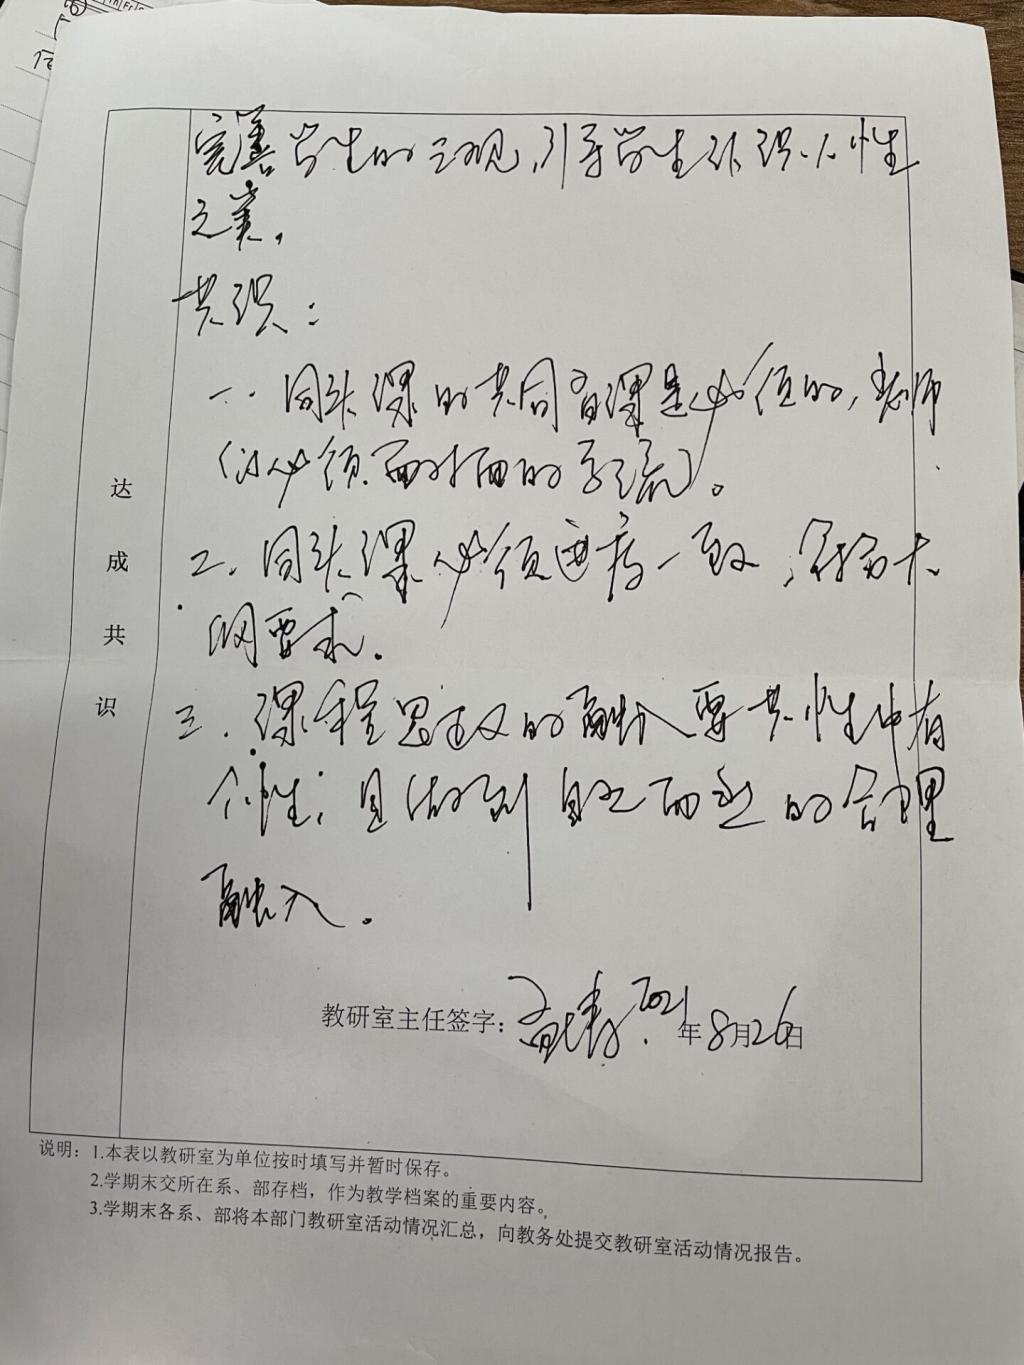 完善学生的三观,引导学生认识人性
之美。
共识:
一. 同头课的共同备课是必须的,老师
们必须面对面的交流。
二. 同头课必须进度一致,符合大
纲要求.
三. 课程思政的融入要共性中有
个性;且做到自然而然的合理
融入.
达成共识
教研室主任签字: 2021年8月26日
说明:1.本表以教研室为单位按时填写并暂时保存。
2.学期末交所在系、部存档,作为教学档案的重要内容。
3.学期末各系、部将本部门教研室活动情况汇总,向教务处提交教研室活动情况报告。